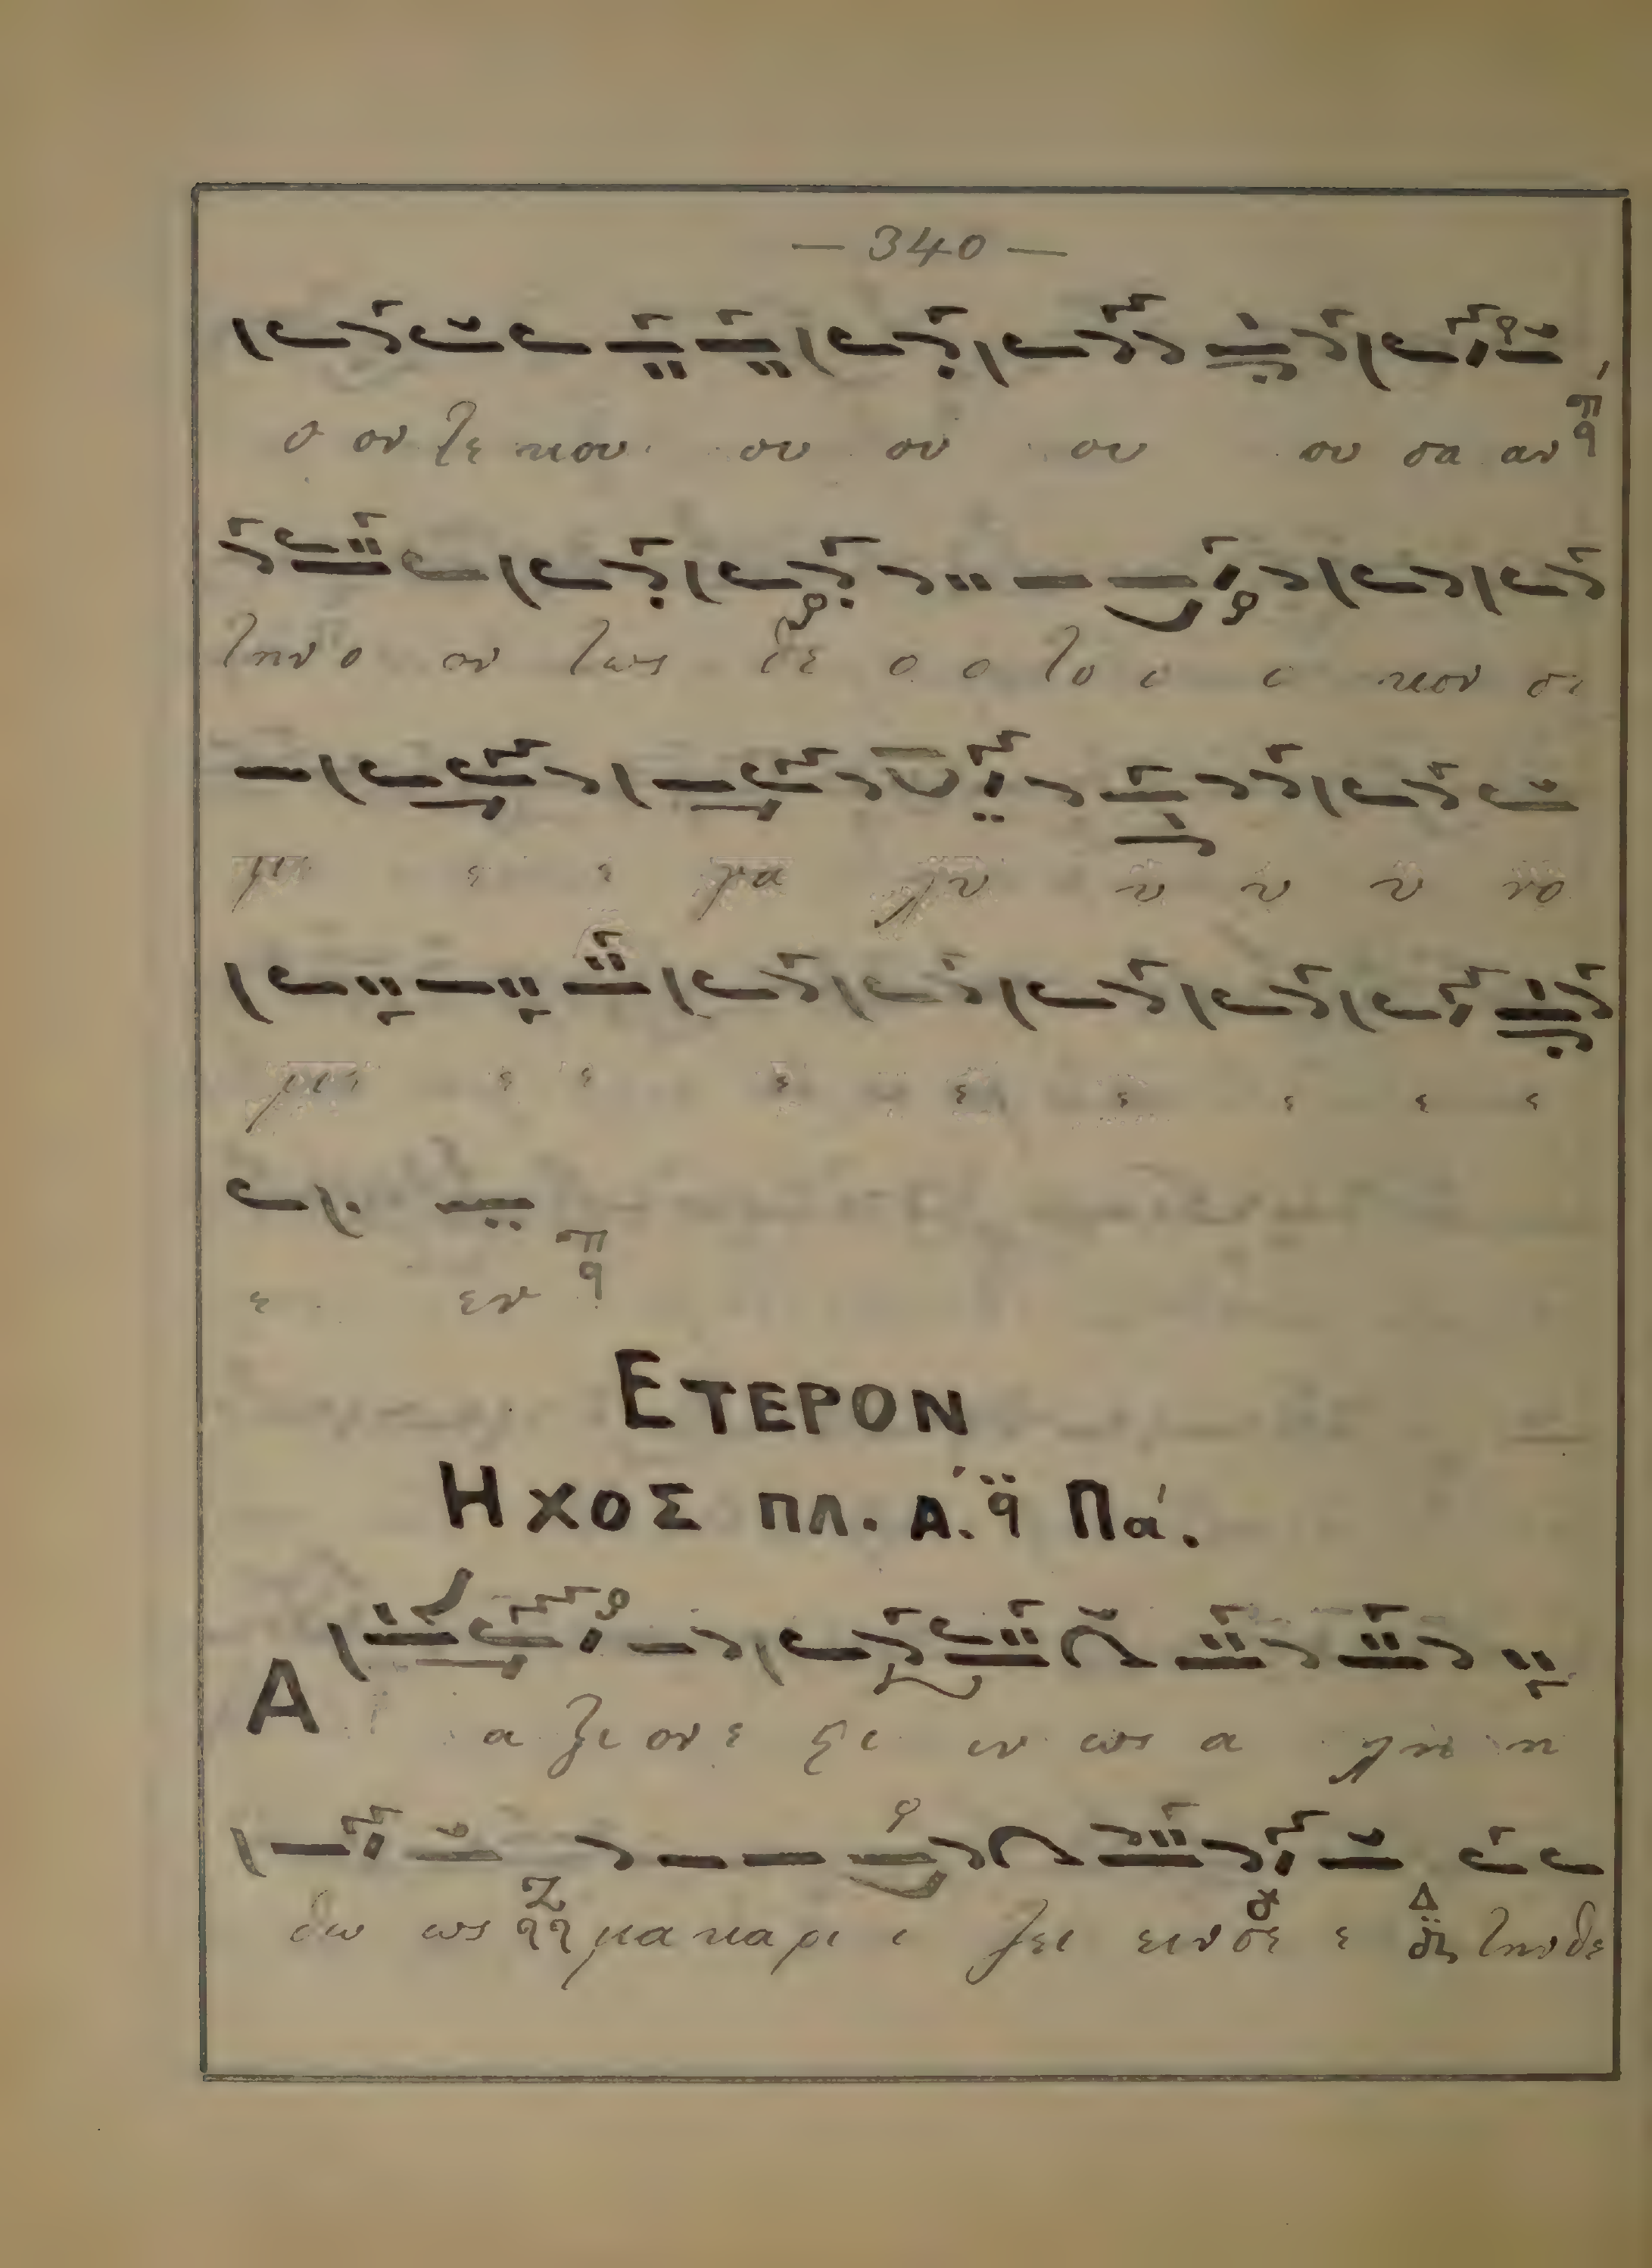 — 340 —
σ ον τε κου ου ου ου ου σα αν
την ο ον τως θε ο ο το ο ο κον σε
με ε ε γα λυ υ υ υ νο
με ε ε ε ε ε ε ε ε
ε εν
ΕΤΕΡΟΝ
ΗΧΟΣ ΠΛ. Α. Πα.
Α α ξι ον ε ςι ιν ως α λη η
θω ως μα κα ρι ι ζει ειν σε ε την θε